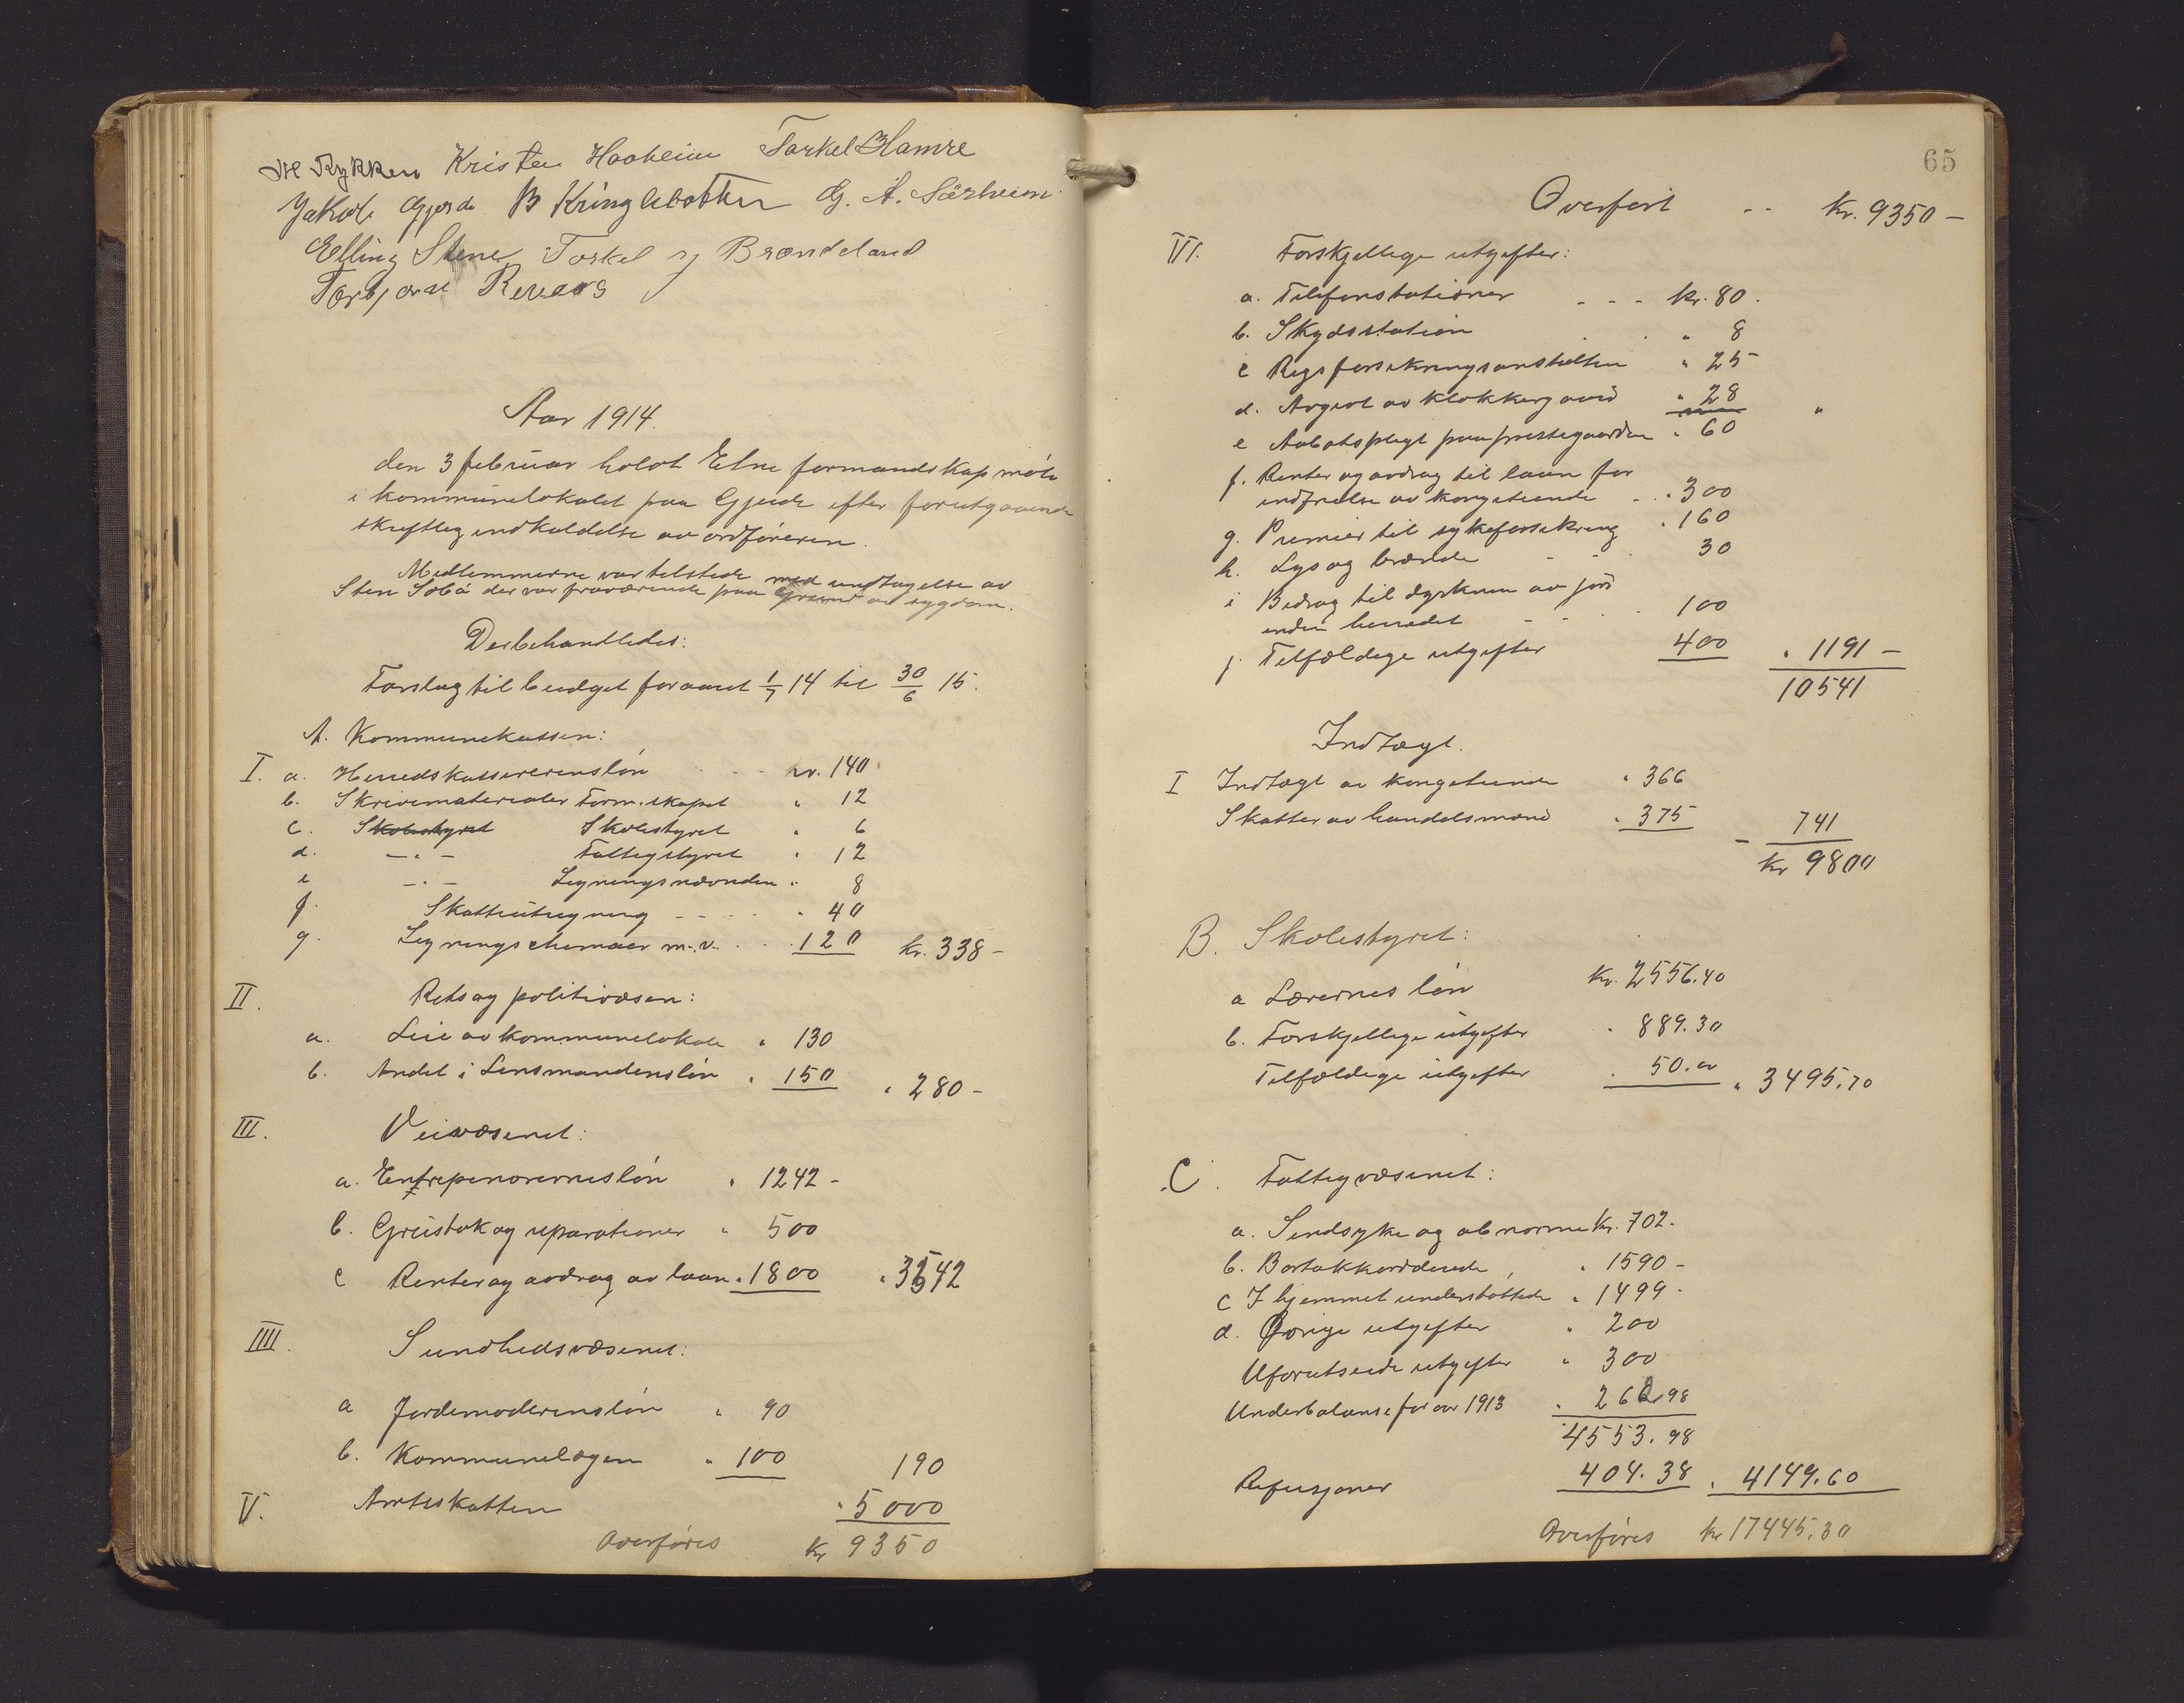 H Rykken Kristen Haaheim Torkel Hamre
Jakob Gjerde B Kringlebotten G. A. Särheim
Elling Stene Torkel Brændeland
Torbjørn
Aar 1914.
den 3 februar holdt Etne formandskap møte
i kommunelokalet paa Gjerde efter forutgaaende
skriftleg indkaldelse av ordføreren.
Medlemmerne var tilstede med undtagelse av
Sten der var fraværende paa Grund av sygdom.
Der behandledes:
Forslag til budget for aaret 1/7 14 til 30/6 15.
A. Kommunekassen:
I. a. Herredskassererens løn - - - kr. 140
b. Skrivematerialer Form.skapet " 12
c. Skolestyret Skolestyret " 6
d. -"- Fattigstyret " 12
e -"- Ligningsnævnden " 8
f. Skatteutregning - - - " 40
g. Ligningschemaer m.v. . . 120 kr. 338-
II. Rets og politivæsen:
a. Leie av kommunelokale " 130
b. Andel i Lensmandens løn " 150 " 280-
III. Veivæsenet:
a. Entrepenørernes løn " 1242-
b. Grustak og reparationer " 500
c Renter og avdrag av laan " 1800 " 3542
IIII. Sundhedsvæsenet:
a Jordemoderens løn " 90
b. Kommunelægen " 100 190
V. Amtsskatten " 5000
Overføres kr 9350
65
Overført - - kr. 9350-
VI. Forskjellige utgifter:
a. Telefonstationer - - - kr. 80.
b. Skydsstation . . " 8
c Rigsforsikringsanstalten " 25
d. Avgivt av klokkergaard " 28 "
e Aabotspligt paa prestegaarden " 60
f. Renter og avdrag til laan for
indfrielse av kongetiende - . " 300
g. Premier til sykeforsikring " 160
h. Lys og brænde - - 30
i Bidrag til dyrkning av jord
inden herredet - - 100
j. Tilfældige utgifter 400 " 1191-
10541
Indtægt.
I Indtægt av kongetiende " 366
Skatter av handelsmænd " 375 - 741
kr 9800
B. Skolestyret:
a Lærernes løn kr. 2556.40
b. Forskjellige utgifter " 889.30
Tilfældige utgifter " 50.00 " 3495.70
C. Fattigvæsenet:
a. Sindsyke og abnorme kr. 702-
b. Bortakkorderede " 1590-
c I hjemmet understøttede " 1499-
d. Øvrige utgifter " 200
Uforutseede utgifter " 300
Underbalanse for aar 1913 " 262.98
4553.98
Refusjoner 404.38 " 4149.60
Overføres kr 17445.30